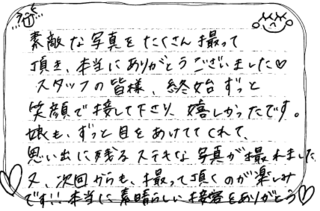 素敵な写真をたくさん撮って
頂き、本当にありがとうございました♡
スタッフの皆様、終始ずっと
笑顔で接して下さり、嬉しかったです。
娘も、ずっと目をあけててくれて、
思い出に残るステキな写真が撮れました
又、次回からも、撮って頂くのが楽しみ
です!!本当に素晴らしい接客をありがとう♡